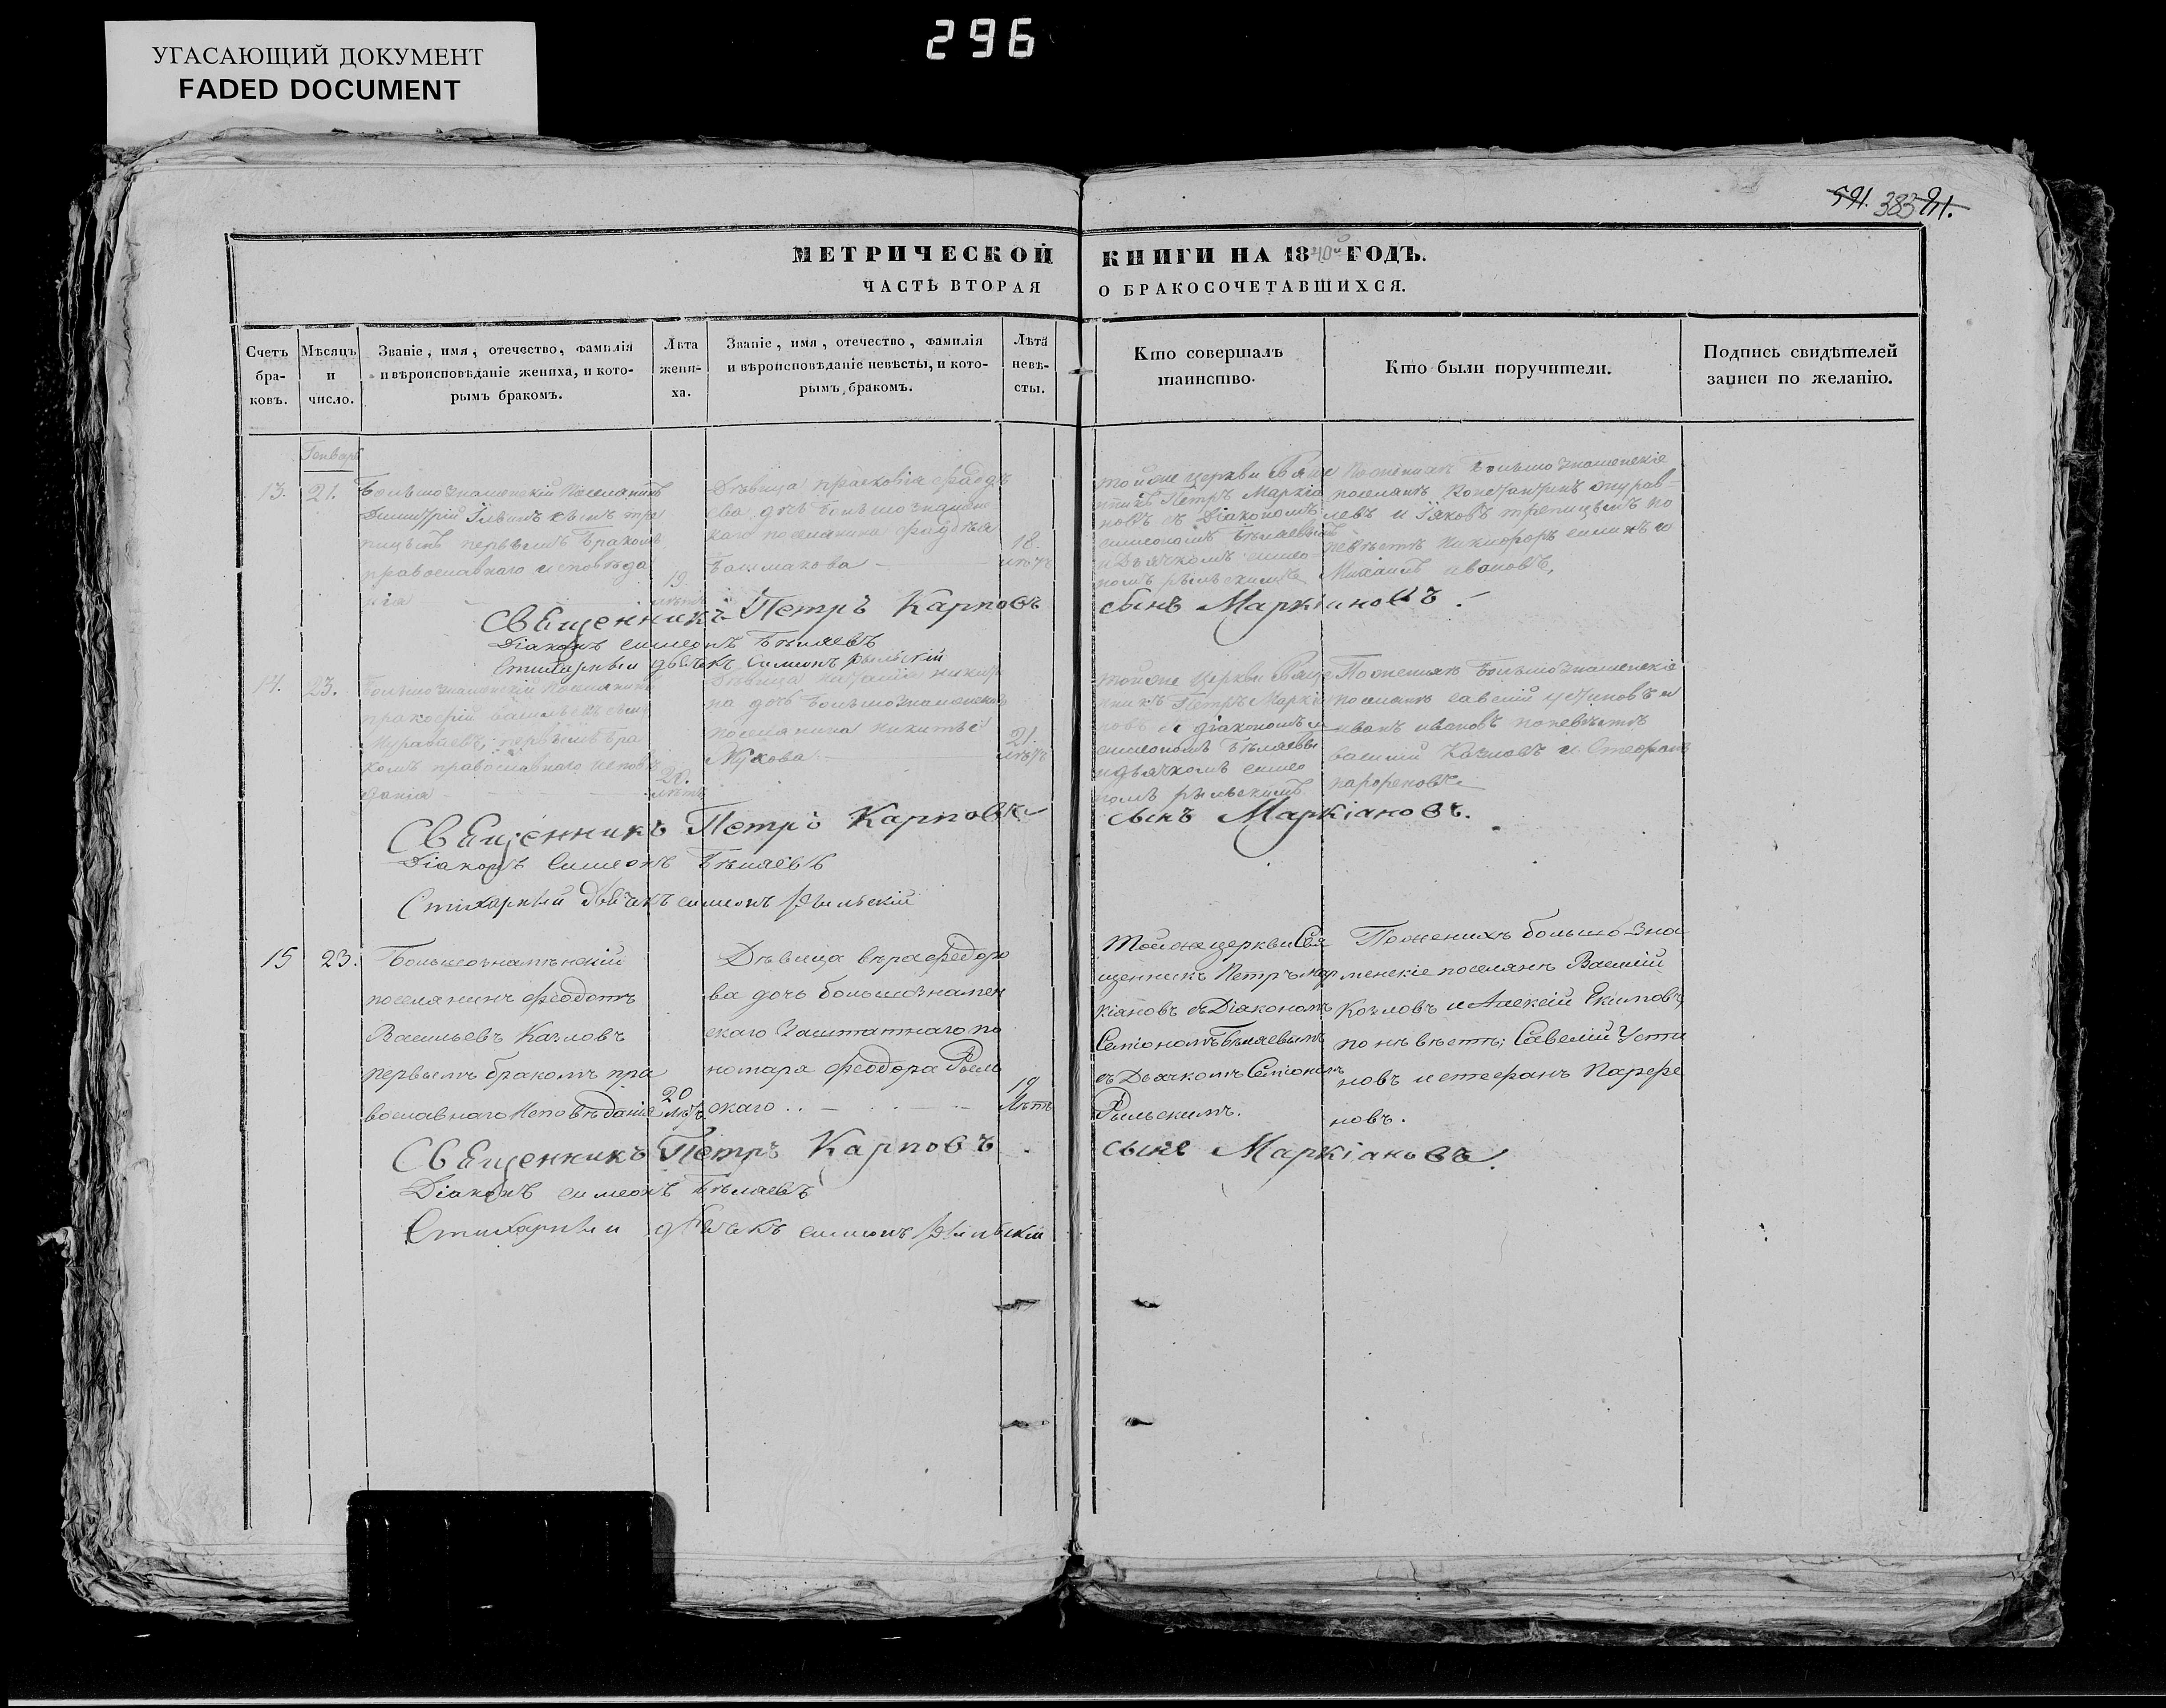 УГАСАЮЩИЙ ДОКУМЕНТ
FADED DOCUMENT
296
591. 383 91.
МЕТРИЧЕСКОЙ КНИГИ НА 1840й ГОДЪ.
ЧАСТЬ ВТОРАЯ О БРАКОСОЧЕТАВШИХСЯ.
Счетъ бра-ковъ.
Мѣсяцъ и число.
Званіе, имя, отечество, фамилія
и вѣроисповѣданіе жениха, и кото-
рымъ бракомъ.
Лѣта жени-ха.
Званіе, имя, отечество, фамилія
и вѣроисповѣданіе невѣсты, и кото-
рымъ бракомъ.
Лѣта невѣ-сты.
Кто совершалъ
таинство.
Кто были поручители.
Подпись свидѣтелей
записи по желанію.
Генварь
13.
21.
Большознаменскій поселянинъ
Димитрій
первымъ бракомъ
православнаго исповѣда
нія
19.
лѣтъ
Дѣвица Прасковія
дочь большознамен
каго поселянина
Башмакова
18.
лѣтъ
тойже церкви Свяще
нникъ Петръ Маркіа
новъ съ Діакономъ
симеономъ Бѣляевымъ
и Дьячкомъ симео
номъ рыльскимъ
По женихѣ Большознаменскіе
поселяне
и Іяковъ по
невѣстѣ Никифоръ
Михаилъ ивановъ,
Священникъ Петръ Карповъ сынъ Маркіановъ.
Діаконъ симеонъ Бѣляевъ
Стихарный дьячекъ симеонъ рыльскій
14.
23.
Большознаменскій поселянинъ
прокофій васильевъ сынъ
первымъ бра
комъ православнаго исповѣ
данія
20.
лѣтъ
Дѣвица Наталія никити
на дочь большознаменскаго
поселянина никиты
Жукова
21.
лѣтъ
тойже Церкви Свяще
нникъ Петръ Маркіа
новъ съ діакономъ
симеономъ Бѣляевы
и дьячкомъ симео
номъ рыльскимъ
По женихѣ Большознаменскіе
поселяне савелій устиновъ и
иванъ ивановъ по невѣстѣ
василій Казловъ и Стефанъ
парфеновъ
Священникъ Петръ Карповъ сынъ Маркіановъ.
Діаконъ симеонъ Бѣляевъ
Стихарный дьячекъ симеонъ рыльскій
15
23.
Большознамѣнскій
поселянинъ Феодотъ
Васильевъ Казловъ
первымъ бракомъ пра
вославнаго Исповѣданіе
20
лѣтъ
Дѣвица вѣра федоро
ва дочь большознамен
скаго Заштатнаго по
номаря Феодора Рыль
скаго
19
лѣтъ
Тойже церкви Свя
щенникъ Петръ мар
кіановъ съ Діякономъ
Семіономъ Бѣляевымъ
съ Дьячкомъ Семіономъ
Рыльскимъ.
По женихѣ большо-зна
менскіе поселяне Василій
Козловъ и Алексій Екимовъ,
по невѣстѣ; Савелій Усти
новъ и стефанъ Парфе
новъ.
Священникъ Петръ Карповъ сынъ Маркіановъ.
Діаконъ симеонъ Бѣляевъ
Стихарный дьячекъ симеонъ рыльскій